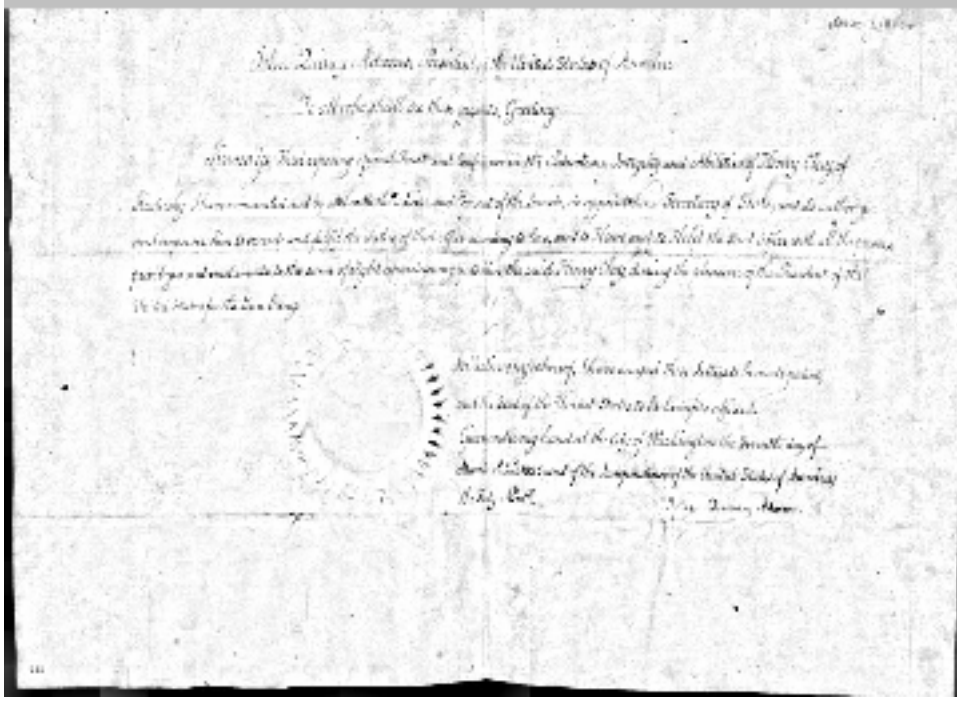 John Quincy Adams, President of the United States of America
To all who shall see these presents, Greeting
Know Ye, That reposing special Trust and Confidence in the Patriotism, Integrity and Abilities of Henry Clay of
Kentucky, I have nominated and by and with the Advice and Consent of the Senate, do appoint him Secretary of State, and do authorize
and empower him to execute and fulfil the duties of that office according to law, and to Have and to Hold the said office with all the powers
privileges and emoluments to the same of right appertaining unto him the said Henry Clay during the pleasure of the President of the
United States for the time being
In testimony whereof, I have caused these Letters to be made patent,
and the Seal of the United States to be hereunto affixed.
Given under my hand at the City of Washington the seventh day of
March and of the Independence of the United States of America
the Forty Ninth
John Quincy Adams